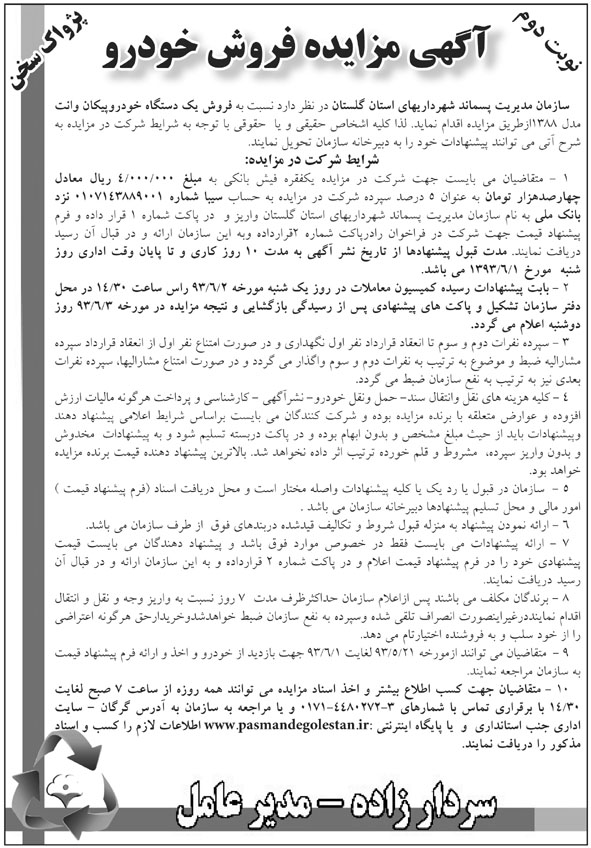 نوبت دوم
آگهی مزایده فروش خودرو
پژواک سخن
سازمان مدیریت پسماند شهرداریهای استان گلستان در نظر دارد نسبت به فروش یک دستگاه خودروپیکان وانت
مدل ۱۳۸۸ازطریق مزایده اقدام نماید. لذا کلیه اشخاص حقیقی و یا حقوقی با توجه به شرایط شرکت در مزایده به
شرح آتی می توانند پیشنهادات خود را به دبیرخانه سازمان تحویل نمایند.
شرایط شرکت در مزایده:
۱ - متقاضیان می بایست جهت شرکت در مزایده یکفقره فیش بانکی به مبلغ ۴/۰۰۰/۰۰۰ ریال معادل
چهارصدهزار تومان به عنوان ۵ درصد سپرده شرکت در مزایده به حساب سیبا شماره ۰۱۰۷۱۴۳۸۸۹۰۰۱ نزد
بانک ملی به نام سازمان مدیریت پسماند شهرداریهای استان گلستان واریز و در پاکت شماره ۱ قرار داده و فرم
پیشنهاد قیمت جهت شرکت در فراخوان رادرپاکت شماره ۲قرارداده وبه این سازمان ارائه و در قبال آن رسید
دریافت نمایند. مدت قبول پیشنهادها از تاریخ نشر آگهی به مدت ۱۰ روز کاری و تا پایان وقت اداری روز
شنبه مورخ ۱۳۹۳/۶/۱ می باشد.
۲ - بابت پیشنهادات رسیده کمیسیون معاملات در روز یک شنبه مورخه ۹۳/۶/۲ راس ساعت ۱۴/۳۰ در محل
دفتر سازمان تشکیل و پاکت های پیشنهادی پس از رسیدگی بازگشایی و نتیجه مزایده در مورخه ۹۳/۶/۳ روز
دوشنبه اعلام می گردد.
۳ - سپرده نفرات دوم و سوم تا انعقاد قرارداد نفر اول نگهداری و در صورت امتناع نفر اول از انعقاد قرارداد سپرده
مشارالیه ضبط و موضوع به ترتیب به نفرات دوم و سوم واگذار می گردد و در صورت امتناع مشارالیها، سپرده نفرات
بعدی نیز به ترتیب به نفع سازمان ضبط می گردد.
۴ - کلیه هزینه های نقل وانتقال سند- حمل ونقل خودرو- نشرآگهی - کارشناسی و پرداخت هرگونه مالیات ارزش
افزوده و عوارض متعلقه با برنده مزایده بوده و شرکت کنندگان می بایست براساس شرایط اعلامی پیشنهاد دهند
وپیشنهادات باید از حیث مبلغ مشخص و بدون ابهام بوده و در پاکت دربسته تسلیم شود و به پیشنهادات مخدوش
و بدون واریز سپرده، مشروط و قلم خورده ترتیب اثر داده نخواهد شد. بالاترین پیشنهاد دهنده قیمت برنده مزایده
خواهد بود.
۵ - سازمان در قبول یا رد یک یا کلیه پیشنهادات واصله مختار است و محل دریافت اسناد (فرم پیشنهاد قیمت )
امور مالی و محل تسلیم پیشنهادها دبیرخانه سازمان می باشد .
۶ - ارائه نمودن پیشنهاد به منزله قبول شروط و تکالیف قیدشده دربندهای فوق از طرف سازمان می باشد.
۷ - ارائه پیشنهادات می بایست فقط در خصوص موارد فوق باشد و پیشنهاد دهندگان می بایست قیمت
پیشنهادی خود را در فرم پیشنهاد قیمت اعلام و در پاکت شماره ۲ قرارداده و به این سازمان ارائه و در قبال آن
رسید دریافت نمایند.
۸ - برندگان مکلف می باشند پس ازاعلام سازمان حداکثرظرف مدت ۷ روز نسبت به واریز وجه و نقل و انتقال
اقدام نماینددرغیراینصورت انصراف تلقی شده وسپرده به نفع سازمان ضبط خواهدشدوخریدارحق هرگونه اعتراضی
را از خود سلب و به فروشنده اختیارتام می دهد.
۹ - متقاضیان می توانند ازمورخه ۹۳/۵/۲۱ لغایت ۹۳/۶/۱ جهت بازدید از خودرو و اخذ و ارائه فرم پیشنهاد قیمت
به سازمان مراجعه نمایند.
۱۰ - متقاضیان جهت کسب اطلاع بیشتر و اخذ اسناد مزایده می توانند همه روزه از ساعت ۷ صبح لغایت
۱۴/۳۰ با برقراری تماس با شمارهای ۳-۴۴۸۰۲۷۲-۰۱۷۱ و یا مراجعه به سازمان به آدرس گرگان - سایت
اداری جنب استانداری و یا پایگاه اینترنتی :www.pasmandegolestan.ir اطلاعات لازم را کسب و اسناد
مذکور را دریافت نمایند.
سردار زاده - مدیر عامل